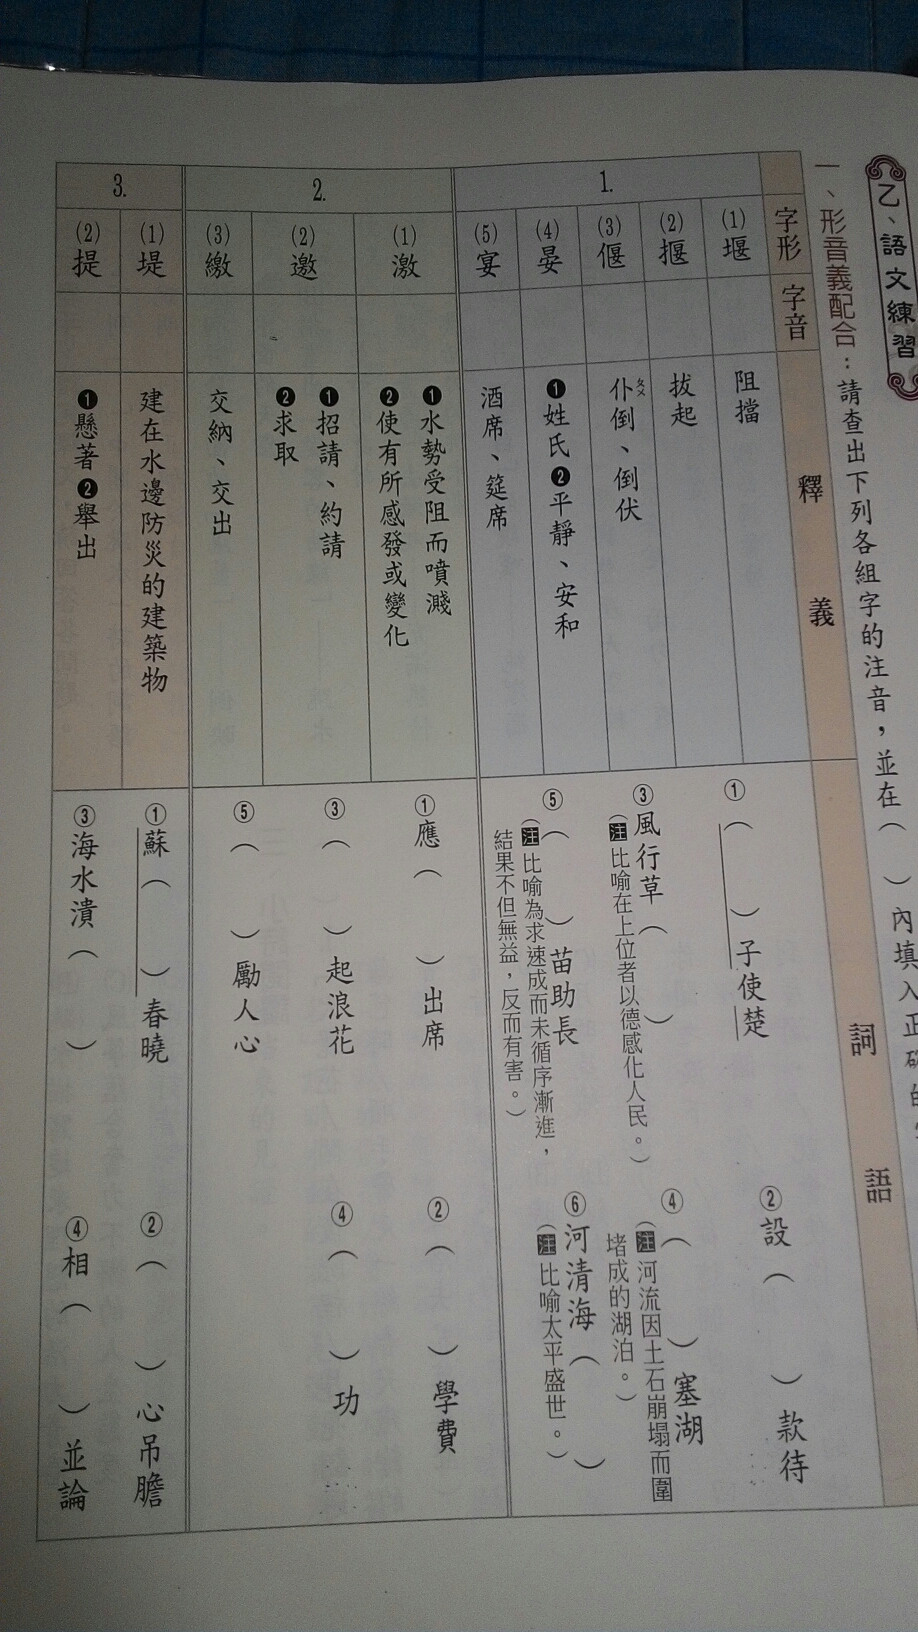 乙、語文練習
一、形音義配合：請查出下列各組字的注音，並在（ ）內填入正確的
字形 字音 釋義 詞語
1.
(1)堰 阻擋
(2)揠 拔起
(3)偃 仆倒、倒伏
ㄆㄨ
(4)晏 ❶姓氏❷平靜、安和
(5)宴 酒席、筵席
①（ ）子使楚
②設（ ）款待
③風行草（ ）
（注比喻在上位者以德感化人民。）
④（ ）塞湖
（注河流因土石崩塌而圍
堵成的湖泊。）
⑤（ ）苗助長
（注比喻為求速成而未循序漸進，
結果不但無益，反而有害。）
⑥河清海（ ）
（注比喻太平盛世。）
2.
(1)激 ❶水勢受阻而噴濺
❷使有所感發或變化
(2)邀 ❶招請、約請
❷求取
(3)繳 交納、交出
①應（ ）出席
②（ ）學費
③（ ）起浪花
④（ ）功
⑤（ ）勵人心
3.
(1)堤 建在水邊防災的建築物
(2)提 ❶懸著❷舉出
①蘇（ ）春曉
②（ ）心吊膽
③海水潰（ ）
④相（ ）並論